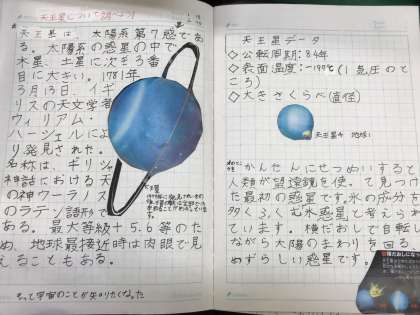 天王星について調べよう!
天王星は、太陽系第7惑であ
る。太陽系の惑星の中で
木星、土星に次ぎ3番
目に大きい。1781年
3月13日、イギ
リスの天文学者
ウィリアム・
ハーシェルによ
り発見された。
名称は、ギリシャ
神話における天
の神ウーラノス
のラテン語形で
ある。最大等級+5.6等のた
め、地球最接近時は肉眼で見
えることもある。
天王星
もって宇宙のことが知りたくなった
天王星データ
◇公転周期:84年
◇表面温度:-197℃(1気圧のと
ころ)
◇大きさくらべ(直径)
天王星4 地球1
かんたんにせつめいすると
人類が望遠鏡を使って見つけ
た最初の惑星です。氷の成分を
多くふくむ氷惑星と考えられ
ています。横だおしで自転し
ながら太陽のまわりを回る、
めずらしい惑星です。